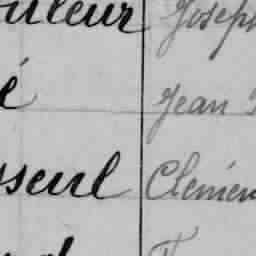 ouleur Joseph
é Jean
sseul Clémen